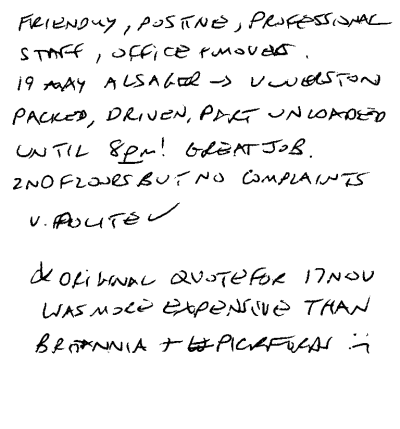 FRIENDLY, POSITIVE, PROFESSIONAL
STAFF, OFFICE + MOVERS.
19 MAY ALSAGER → ULVERSTON
PACKED, DRIVEN, PART UNLOADED
UNTIL 8pm! GREAT JOB.
2ND FLOORS BUT NO COMPLAINTS
V. POLITE ✓
& ORIGINAL QUOTE FOR 17 NOV
WAS MORE EXPENSIVE THAN
BRITANNIA + PICKFORDS :-)